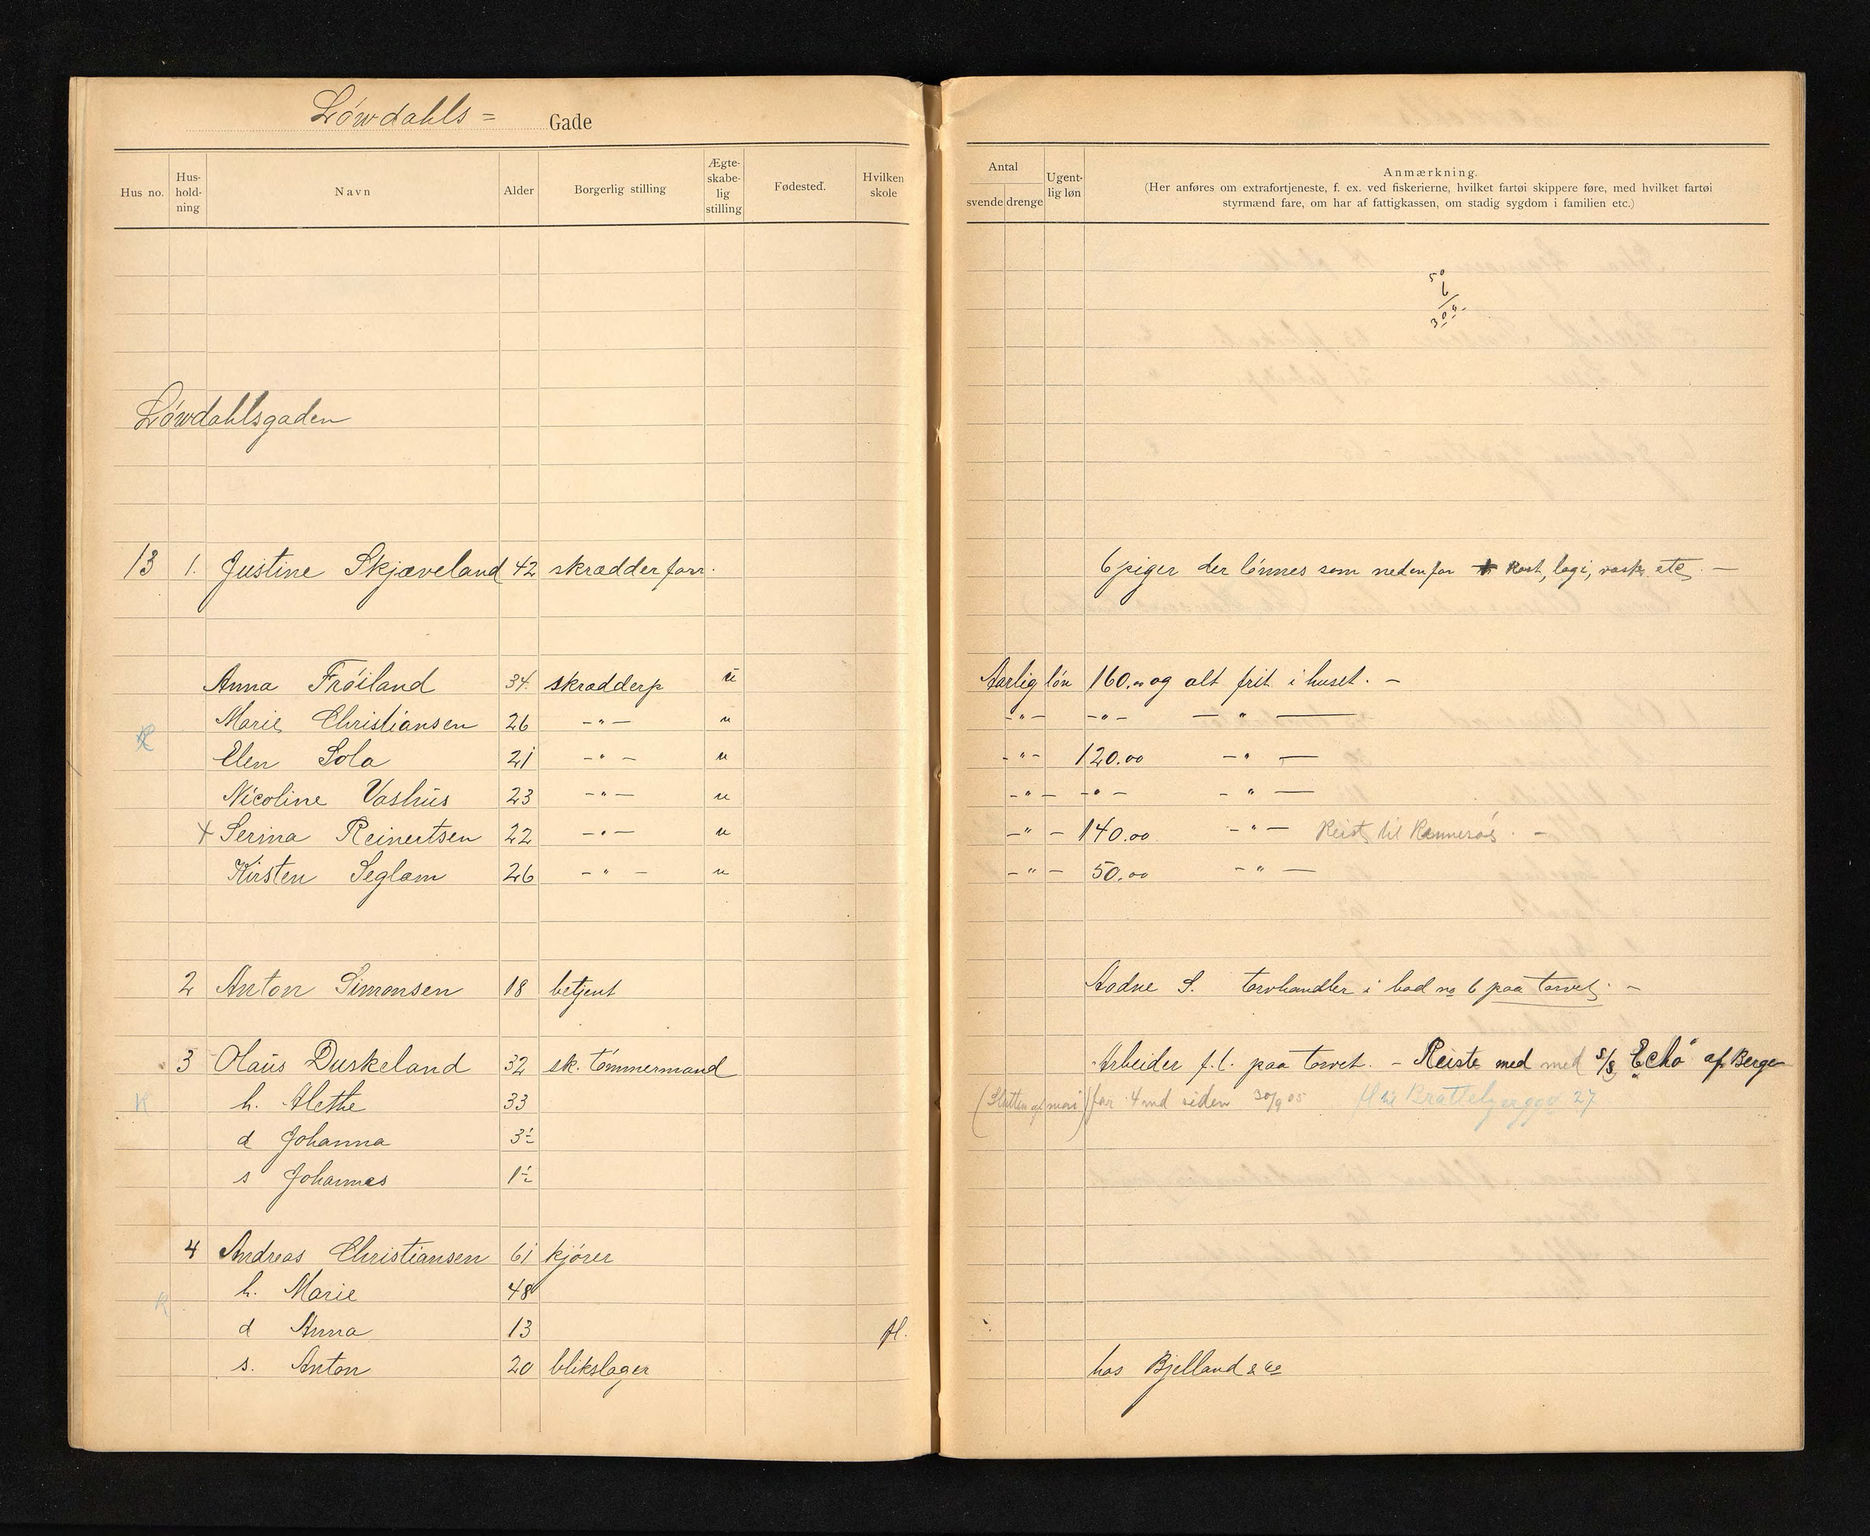 Løwdahls = Gade
Hus no. Hus-hold-ning Navn Alder Borgerlig stilling Ægte-skabe-lig stilling Fødested. Hvilken skole
Antal svende drenge Ugent-lig løn Anmærkning.
(Her anføres om extrafortjeneste, f. ex. ved fiskerierne, hvilket fartøi skippere føre, med hvilket fartøi
styrmænd fare, om har af fattigkassen, om stadig sygdom i familien etc.)
50
6
300
Løwdahlsgaden
13 1. Justine Skjæveland 42 skrædderforr. 6 piger der lønnes som nedenfor kost, logi, vask etc. —
Anna Frøiland 34. skrædderp u Aarlig løn 160.00 og alt frit i huset. —
Marie Christiansen 26 —"— u —"— —"— — " —
Elen Sola 21 —"— u —"— 120.00 —"—
Nicoline Vashus 23 —"— u —"— —"— —"—
x Serina Reinertsen 22 —"— u —"— 140.00 —"— Reist til Rennesøe. —
Kirsten Seglem 26 —"— u —"— 50.00 —"—
2 Anton Simonsen 18 betjent Aadne S. torvhandler i bod no 6 paa torvet. —
3 Olaus Duskeland 32 sk. tømmermand Arbeider f. t. paa torvet. — Reiste med med s/s "Echo" af Bergen
K h. Alethe 33 (Slutten af mai) for 4 md siden 30/9 05 fl til Brattebjerggd 27
d Johanna 3½
s Johannes 1½
4 Andreas Christiansen 61 kjører
h. Marie 48
K
d Anna 13 fl.
s. Anton 20 blikslager hos Bjelland & Co